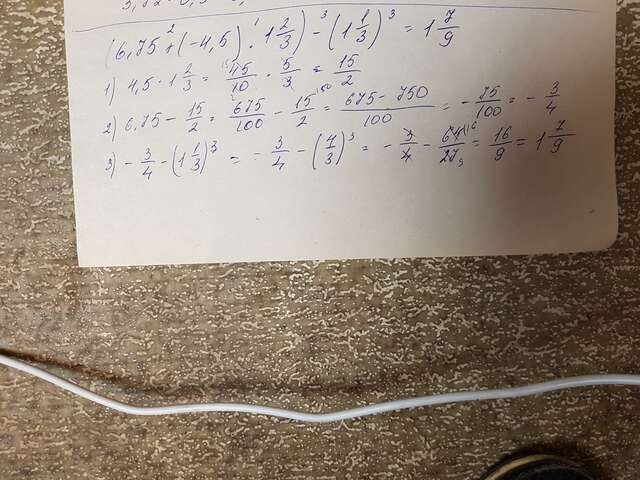 (6,75 + (-4,5) · 1 2/3) - (1 1/3)³ = 1 7/9
1) 4,5 · 1 2/3 = 45/10 · 5/3 = 15/2
2) 6,75 - 15/2 = 675/100 - 15/2 = 675 - 750/100 = - 75/100 = - 3/4
3) - 3/4 - (1 1/3)³ = - 3/4 - (4/3)³ = - 3/4 - 64/27 = 16/9 = 1 7/9